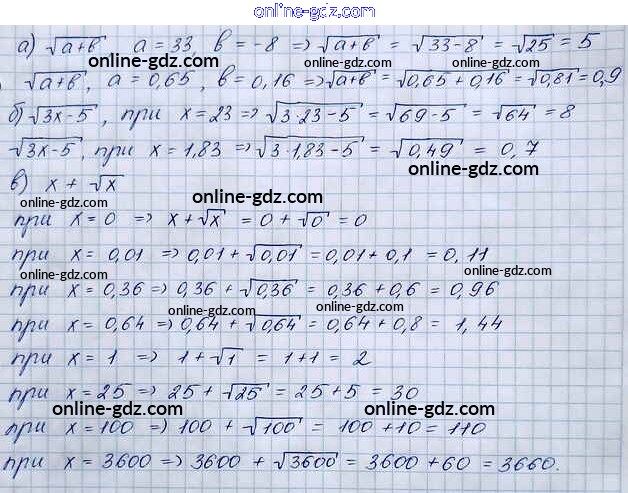 online-gdz.com
а) √(a+b) a = 33, b = -8 => √(a+b) = √(33-8) = √25 = 5
online-gdz.com online-gdz.com
√(a+b), a = 0,65, b = 0,16 => √(a+b) = √(0,65+0,16) = √0,81 = 0,9
б) √(3x-5), при x = 23 => √(3·23-5) = √(69-5) = √64 = 8
√(3x-5), при x = 1,83 => √(3·1,83-5) = √0,49 = 0,7
в) x + √x
online-gdz.com online-gdz.com
при x = 0 => x + √x = 0 + √0 = 0
online-gdz.com
при x = 0,01 => 0,01 + √0,01 = 0,01 + 0,1 = 0,11
online-gdz.com online-gdz.com
при x = 0,36 => 0,36 + √0,36 = 0,36 + 0,6 = 0,96
online-gdz.com online-gdz.com
при x = 0,64 => 0,64 + √0,64 = 0,64 + 0,8 = 1,44
при x = 1 => 1 + √1 = 1 + 1 = 2
при x = 25 => 25 + √25 = 25 + 5 = 30
online-gdz.com online-gdz.com
при x = 100 => 100 + √100 = 100 + 10 = 110
при x = 3600 => 3600 + √3600 = 3600 + 60 = 3660.